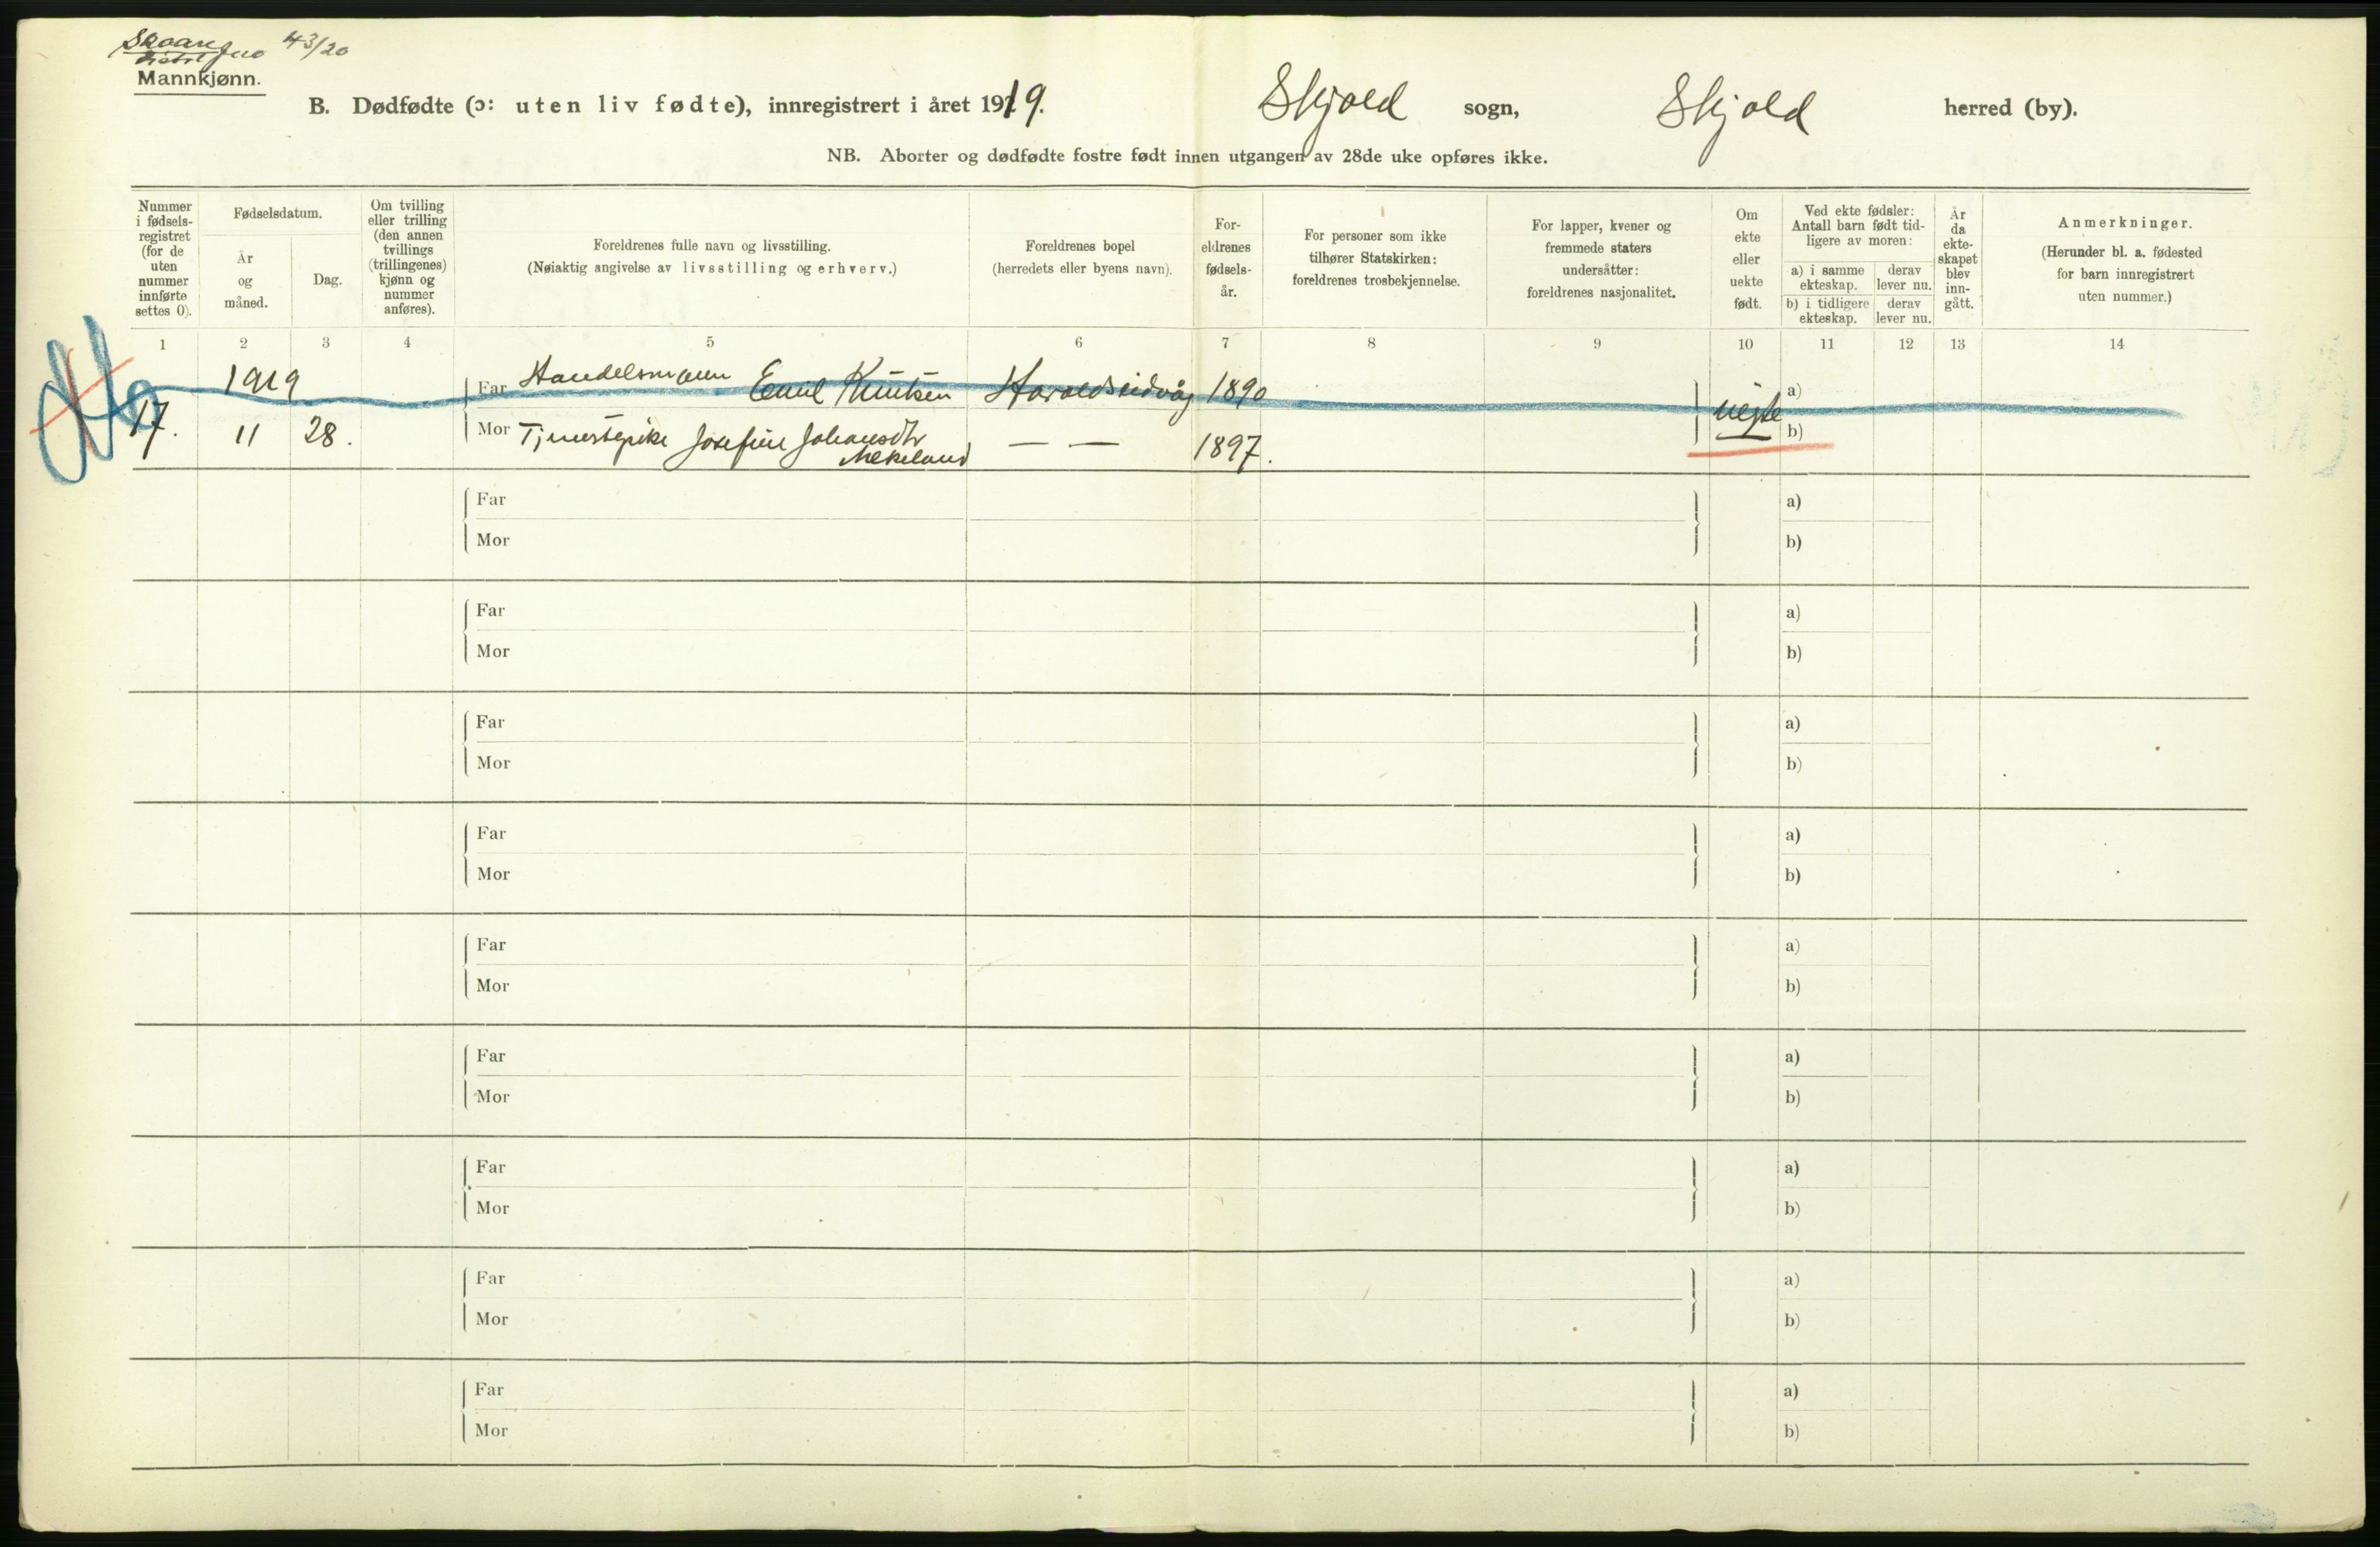 43/20
Mannkjønn.
B. Dødfødte (ɔ: uten liv fødte), innregistrert i året 1919. Skjold sogn, Skjold herred (by).
NB. Aborter og dødfødte fostre født innen utgangen av 28de uke opføres ikke.
Nummer
i fødsels-
registret
(for de
uten
nummer
innførte
settes 0).
Fødselsdatum.
År
og
måned.
Dag.
Om tvilling
eller trilling
(den annen
tvillings
(trillingenes)
kjønn og
nummer
anføres).
Foreldrenes fulle navn og livsstilling.
(Nøiaktig angivelse av livsstilling og erhverv.)
Foreldrenes bopel
(herredets eller byens navn).
For-
eldrenes
fødsels-
år.
For personer som ikke
tilhører Statskirken:
foreldrenes trosbekjennelse.
For lapper, kvener og
fremmede staters
undersåtter:
foreldrenes nasjonalitet.
Om
ekte
eller
uekte
født.
Ved ekte fødsler:
Antall barn født tid-
ligere av moren:
a) i samme
ekteskap.
derav
lever nu.
b) i tidligere
ekteskap.
derav
lever nu.
År
da
ekte-
skapet
blev
inn-
gått.
Anmerkninger.
(Herunder bl. a. fødested
for barn innregistrert
uten nummer.)
1 2 3 4 5 6 7 8 9 10 11 12 13 14
1919 Far Handelsmann Emil Knutsen Haraldseidvåg 1890 a)
17. 11 28. Mor Tjenestepike Josefine Johansdtr — — 1897. uegte b)
Far a)
Mor b)
Far a)
Mor b)
Far a)
Mor b)
Far a)
Mor b)
Far a)
Mor b)
Far a)
Mor b)
Far a)
Mor b)
Far a)
Mor b)
Far a)
Mor b)